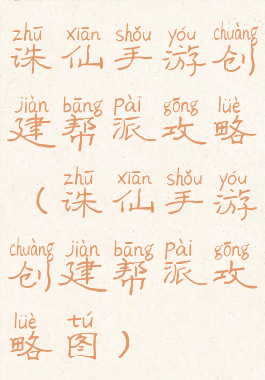 zhū xiān shǒu yóu chuàng
诛仙手游创
jiàn bāng pài gōng lüè
建帮派攻略
zhū xiān shǒu yóu
(诛仙手游
chuàng jiàn bāng pài gōng
创建帮派攻
lüè tú
略图)